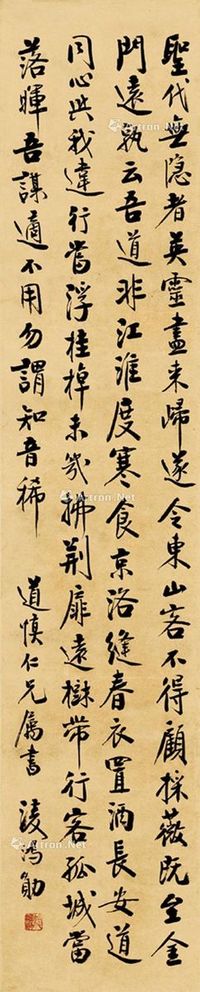 聖代無隱者英靈盡來歸遂令東山客不得顧採薇既至金
門遠孰云吾道非江淮度寒食京洛縫春衣置酒長安道
同心與我違行當浮桂棹未幾拂荊扉遠樹帶行客孤城當
落暉吾謀適不用勿謂知音稀
道慎仁兄屬書 淩鴻勛